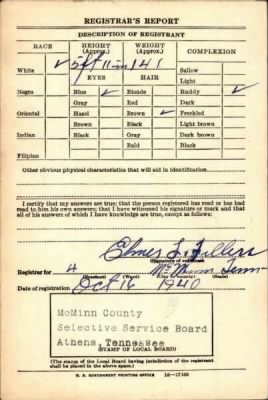 REGISTRAR'S REPORT
DESCRIPTION OF REGISTRANT
RACE HEIGHT (Approx.) WEIGHT (Approx.) COMPLEXION
White ✓ 5 ft 11 in 141 Sallow
EYES HAIR Light
Negro Blue ✓ Blonde Ruddy ✓
Gray Red Dark
Oriental Hazel Brown ✓ Freckled
Brown Black Light brown
Indian Black Gray Dark brown
Bald Black
Filipino
Other obvious physical characteristics that will aid in identification
I certify that my answers are true; that the person registered has read or has had
read to him his own answers; that I have witnessed his signature or mark and that
all of his answers of which I have knowledge are true, except as follows:
Elmer L. Fillers
(Signature of registrar)
Registrar for 4 McMinn Tenn
(Precinct) (Ward) (City or county) (State)
Date of registration Oct 16 1940
McMinn County
Selective Service Board
Athens, Tennessee
(STAMP OF LOCAL BOARD)
(The stamp of the Local Board having jurisdiction of the registrant
shall be placed in the above space.)
U. S. GOVERNMENT PRINTING OFFICE 16—17105